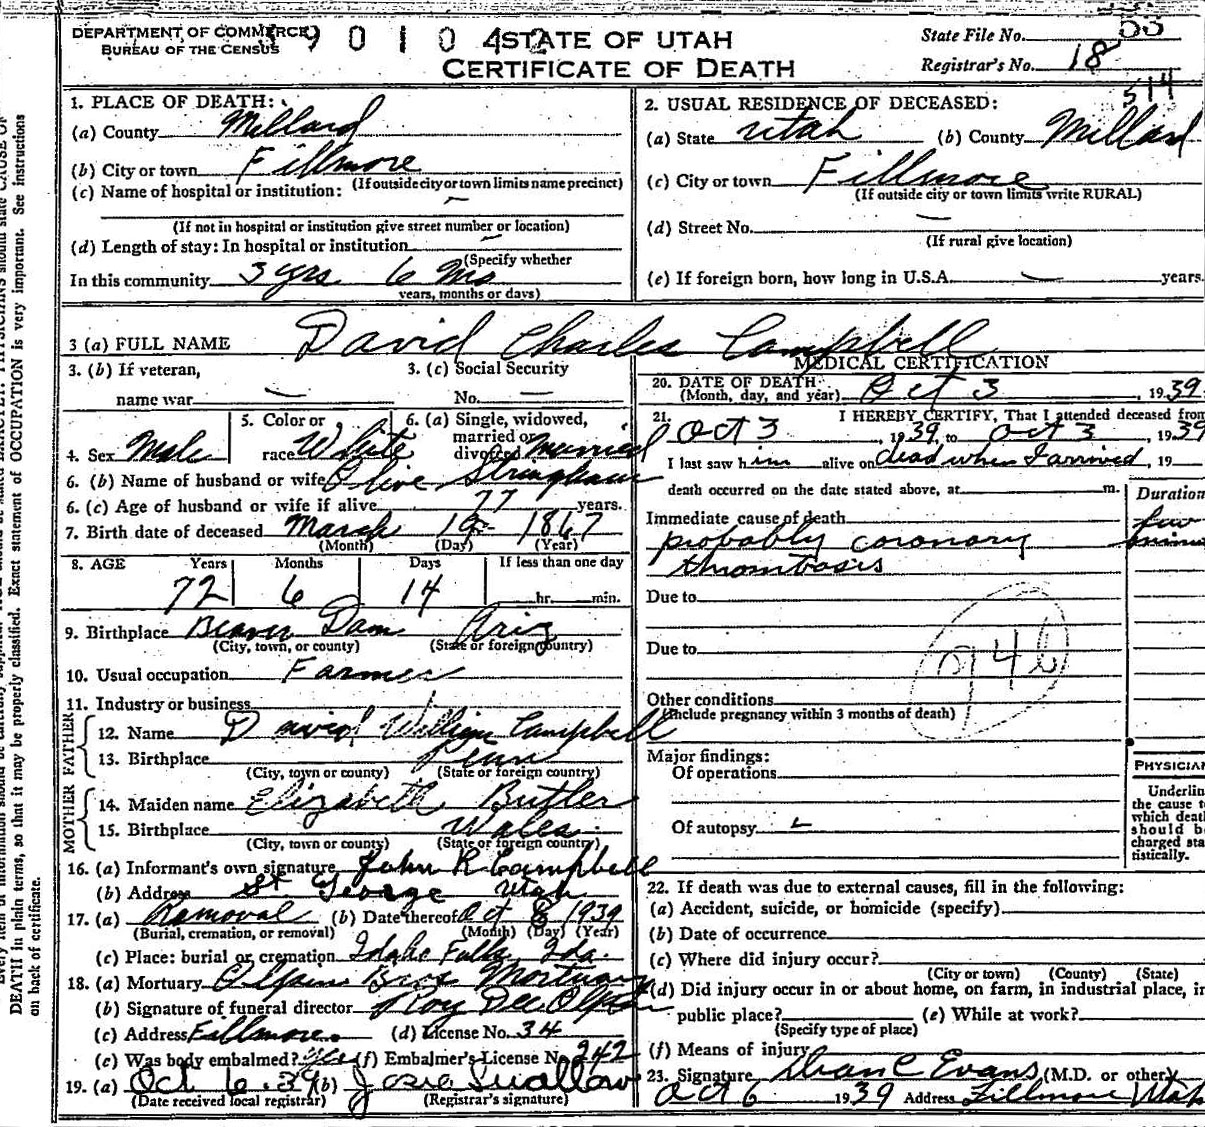 DEPARTMENT OF COMMERCE
BUREAU OF THE CENSUS
9 0 1 0 4 2
STATE OF UTAH
CERTIFICATE OF DEATH
State File No. 53
Registrar's No. 18
514
1. PLACE OF DEATH:
(a) County Millard
(b) City or town Fillmore
(If outside city or town limits name precinct)
(c) Name of hospital or institution:
(If not in hospital or institution give street number or location)
(d) Length of stay: In hospital or institution
(Specify whether
In this community 3 yrs 6 Mo
years, months or days)
2. USUAL RESIDENCE OF DECEASED:
(a) State Utah (b) County Millard
(c) City or town Fillmore
(If outside city or town limits write RURAL)
(d) Street No.
(If rural give location)
(e) If foreign born, how long in U.S.A. years.
3 (a) FULL NAME David Charles Campbell
3. (b) If veteran,
name war
3. (c) Social Security
No.
4. Sex Male
5. Color or
race White
6. (a) Single, widowed,
married or
divorced married
6. (b) Name of husband or wife Olive Stringham
6. (c) Age of husband or wife if alive 77 years.
7. Birth date of deceased March 19 1867
(Month) (Day) (Year)
8. AGE Years Months Days If less than one day
72 6 14 hr. min.
9. Birthplace Beaver Dam Ariz
(City, town, or county) (State or foreign country)
10. Usual occupation Farmer
11. Industry or business
FATHER
12. Name David William Campbell
13. Birthplace Penn
(City, town or county) (State or foreign country)
MOTHER
14. Maiden name Elizabeth Butler
15. Birthplace Wales
(City, town or county) (State or foreign country)
16. (a) Informant's own signature John R Campbell
(b) Address St George Utah
17. (a) Removal (b) Date thereof Oct 8 1939
(Burial, cremation, or removal) (Month) (Day) (Year)
(c) Place: burial or cremation Idaho Falls, Ida.
18. (a) Mortuary Olpin Bros Mortuary
(b) Signature of funeral director Roy Dee Olpin
(c) Address Fillmore. (d) License No. 34
(e) Was body embalmed? Yes (f) Embalmer's License No. 242
19. (a) Oct 6. 39 (b) Josie Swallow
(Date received local registrar) (Registrar's signature)
MEDICAL CERTIFICATION
20. DATE OF DEATH
(Month, day, and year) Oct 3, 1939
21. I HEREBY CERTIFY, That I attended deceased from
Oct 3, 1939 to Oct 3, 1939
I last saw him alive on dead when I arrived, 19
death occurred on the date stated above, at m.
Duration
Immediate cause of death few
probably coronary
thrombosis
Due to
Due to
94b
Other conditions
(Include pregnancy within 3 months of death)
Major findings:
Of operations
Of autopsy
PHYSICIAN
Underlin
the cause to
which deat
should b
charged sta
tistically.
22. If death was due to external causes, fill in the following:
(a) Accident, suicide, or homicide (specify)
(b) Date of occurrence
(c) Where did injury occur?
(City or town) (County) (State)
(d) Did injury occur in or about home, on farm, in industrial place, in
public place? (e) While at work?
(Specify type of place)
(f) Means of injury
23. Signature Dean C Evans (M.D. or other)
Oct 6 1939 Address Fillmore Utah
DEATH in plain terms, so that it may be properly classified. Exact statement of OCCUPATION is very important. See instructions
on back of certificate.